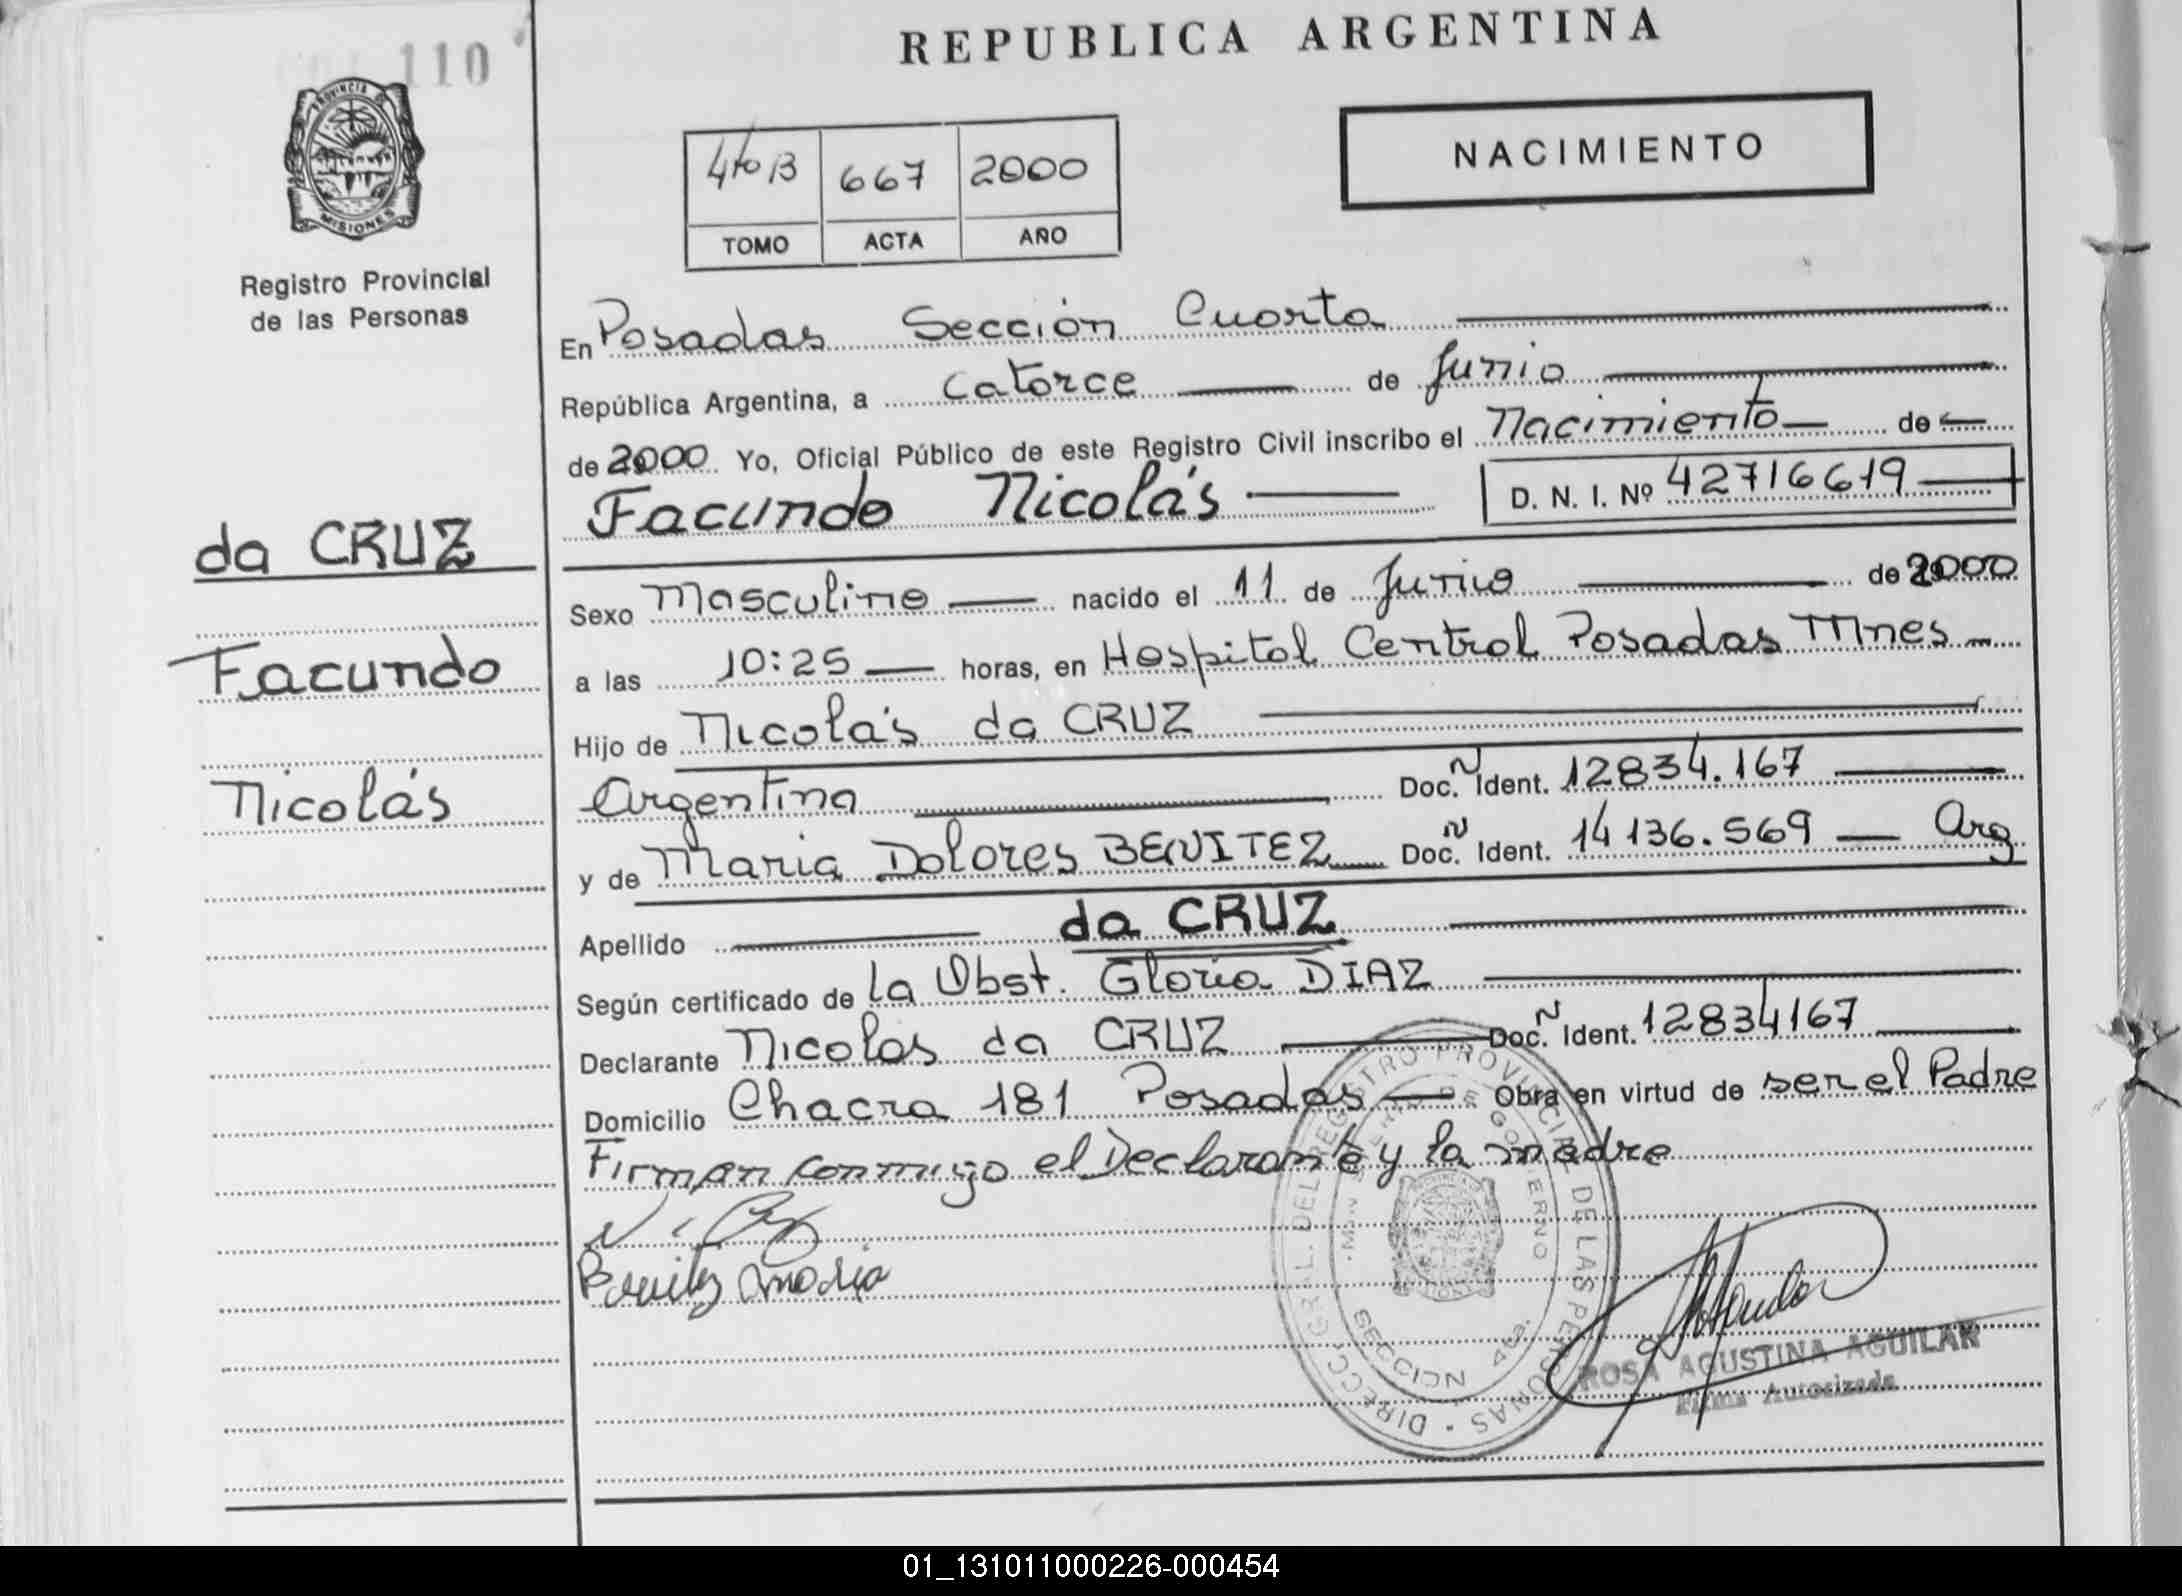 110
REPUBLICA ARGENTINA
PROVINCIA DE
MISIONES
Registro Provincial
de las Personas
4to B 667 2000
TOMO ACTA AÑO
NACIMIENTO
En Posadas Sección Cuarta
República Argentina, a catorce de Junio
de 2000 Yo, Oficial Público de este Registro Civil inscribo el Nacimiento de
Facundo Nicolás D. N. I. Nº 42716619
da CRUZ
Facundo
Nicolás
Sexo Masculino nacido el 11 de Junio de 2000
a las 10:25 horas, en Hospital Central Posadas Mnes
Hijo de Nicolás da CRUZ
Argentina Doc. N Ident. 12834.167
y de Maria Dolores BENITEZ Doc. N Ident. 14136.569 Arg
Apellido da CRUZ
Según certificado de la Obst. Gloria DIAZ
Declarante Nicolas da CRUZ Doc. N Ident. 12834167
Domicilio Chacra 181 Posadas Obra en virtud de ser el Padre
Firman conmigo el Declarante y la madre
Benitez Maria
DIRECC. GRAL. DEL REGISTRO PROVINCIAL DE LAS PERSONAS
MIN DE GOBIERNO
SECCION 4ta.
ROSA AGUSTINA AGUILAR
Firma Autorizada
01_131011000226-000454